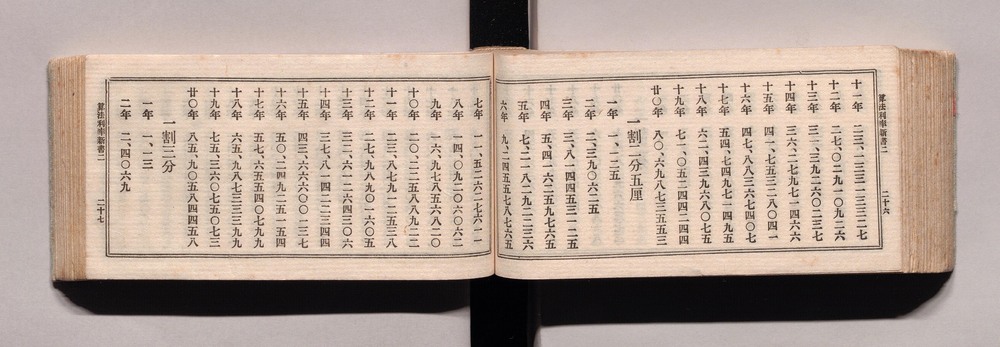 算法利率新書二　二十六
十一年　二三、一三三一三三二七
十二年　二七、〇二九一〇九二六
十三年　三一、三九二六〇二三七
十四年　三六、二七九七一四六六
十五年　四一、七五三二八〇四一
十六年　四七、八八三六七四〇七
十七年　五四、七四九七一四九五
十八年　六二、四三九六八〇七五
十九年　七一、〇五二四四二四四
廿〇年　八〇、六九八七三五五三
一割二分五厘
一年　一、一二五
二年　二、三九〇六二五
三年　三、八一四四五三一二五
四年　五、四一六二五九七六五
五年　七、二一八二九二二三六
六年　九、二四五五七八七六五
七年　一一、五二六二七六一一
八年　一四、〇九二〇六〇六二
九年　一六、九七八五六八二〇
十〇年　二〇、二二五八八九二二
十一年　二三、八七九一二五三八
十二年　二七、九八九〇一六〇五
十三年　三二、六一二六四三〇六
十四年　三七、八一四二二三四四
十五年　四三、六六六〇〇一三七
十六年　五〇、二四九二五一五四
十七年　五七、六五五四〇七九九
十八年　六五、九八七三三三九九
十九年　七五、三六〇七五〇七三
廿〇年　八五、九〇五八四四五八
一割三分
一年　一、一三
二年　二、四〇六九
算法利率新書二　二十七